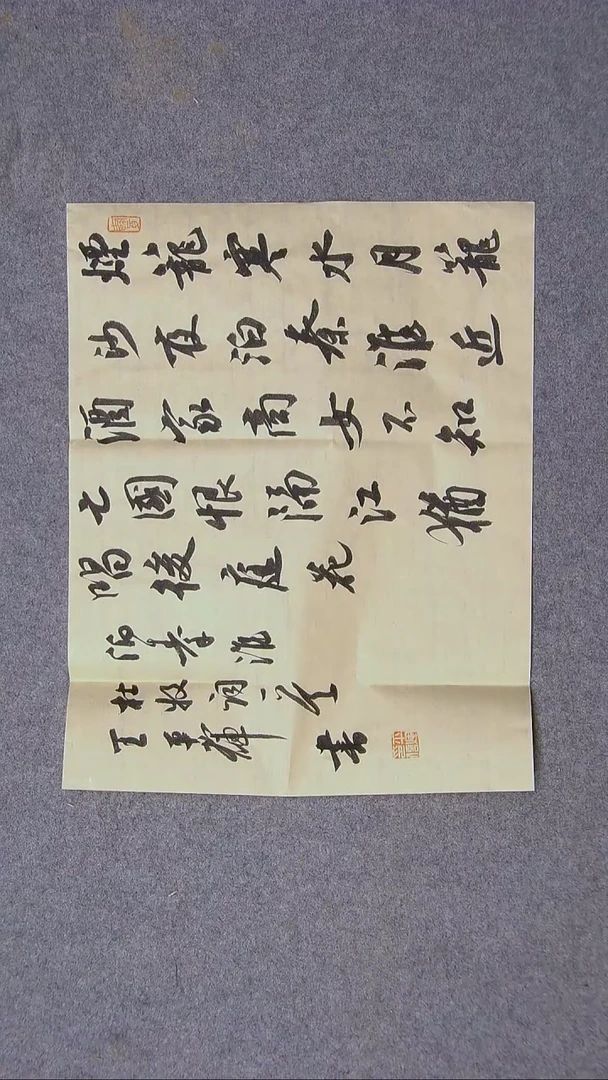 煙龍寒水月籠
沙夜泊秦淮近
酒家商女不知
亡國恨隔江猶
唱後庭花
泊秦淮
杜牧詞一首
王輝書